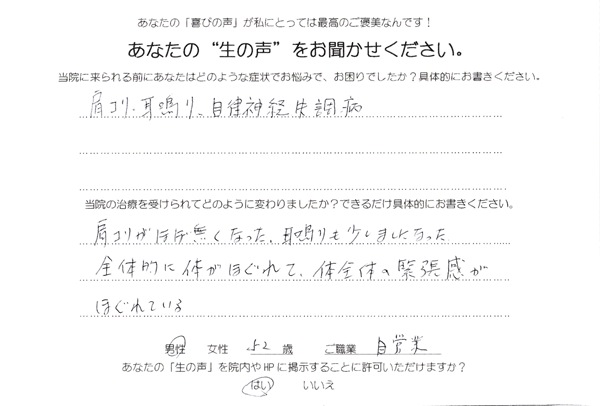 あなたの「喜びの声」が私にとっては最高のご褒美なんです！
あなたの“生の声”をお聞かせください。
当院に来られる前にあなたはどのような症状でお悩みで、お困りでしたか？具体的にお書きください。
肩コリ、耳鳴り、自律神経失調病
当院の治療を受けられてどのように変わりましたか？できるだけ具体的にお書きください。
肩コリがほぼ無くなった、耳鳴りも少しましになった
全体的に体がほぐれて、体全体の緊張感が
ほぐれている
男性 女性 52 歳 ご職業 自営業
あなたの「生の声」を院内やHPに掲示することに許可いただけますか？
はい いいえ